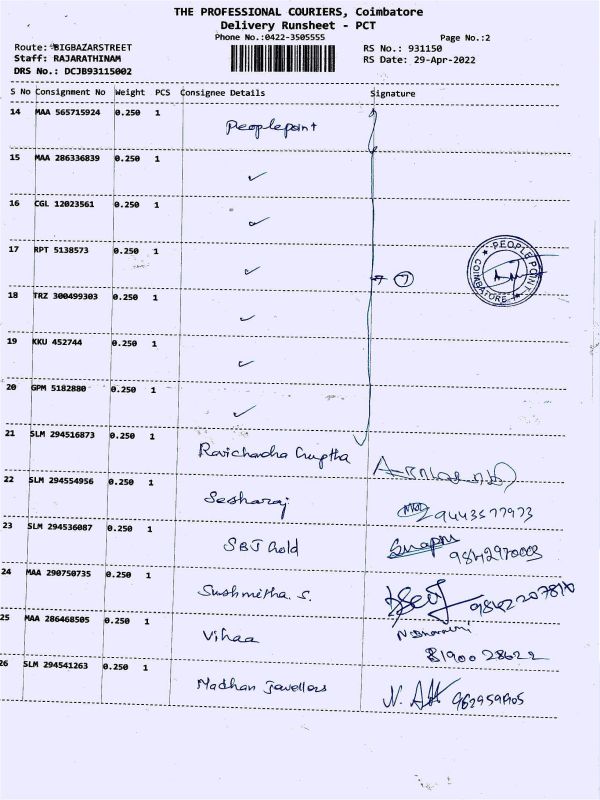 THE PROFESSIONAL COURIERS, Coimbatore
Delivery Runsheet - PCT
Phone No.:0422-3505555
Page No.:2
Route: BIGBAZARSTREET
RS No.: 931150
Staff: RAJARATHINAM
RS Date: 29-Apr-2022
DRS No.: DCJB93115002
S No Consignment No Weight PCS Consignee Details Signature
14 MAA 565715924 0.250 1 Peoplepoint
15 MAA 286336839 0.250 1 ✓
16 CGL 12023561 0.250 1 ✓
17 RPT 5138573 0.250 1 ✓
7
PEOPLE POINT
COIMBATORE
18 TRZ 300499303 0.250 1 ✓
19 KKU 452744 0.250 1 ✓
20 GPM 5182880 0.250 1 ✓
21 SLM 294516873 0.250 1 Ravichandra Guptha
22 SLM 294554956 0.250 1 Sesharaj
9443577973
23 SLM 294536087 0.250 1 SBJ Gold
9842970003
24 MAA 290750735 0.250 1 Sushmitha. S.
25 MAA 286468505 0.250 1 Vihaa
81900 28622
26 SLM 294541263 0.250 1 Madhan Jewellers